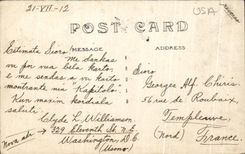 21-VII-12
USA
POST CARD
MESSAGE
ADDRESS
Estimata Sioro
Me dankas
vu por vua bela karto
e me sendas a vu karto
montrante nia "Kapitolo".
Kun maxim kordiala
saluti
Clyde L. Williamson
329 Eleventh St. N.E.
Washington, D.C.
(Usono)
Sioro
Georges Alf. Chiris.
56 rue de Roubaix,
Templeuve
(Nord) France.